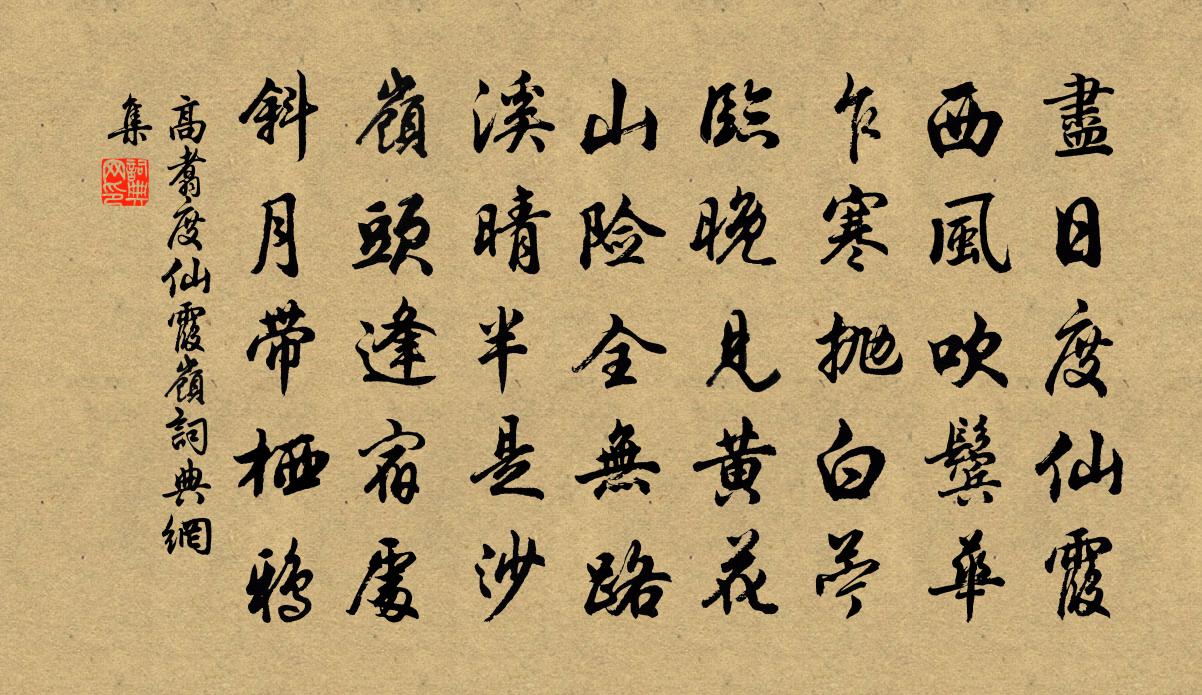 盡日度仙霞
西風吹鬢華
乍寒抛白苧
臨晚見黃花
山险全無路
溪晴半是沙
嶺頭逢宿處
斜月帶栖鴉
高翥度仙霞嶺詞典網
集
詞典
网印